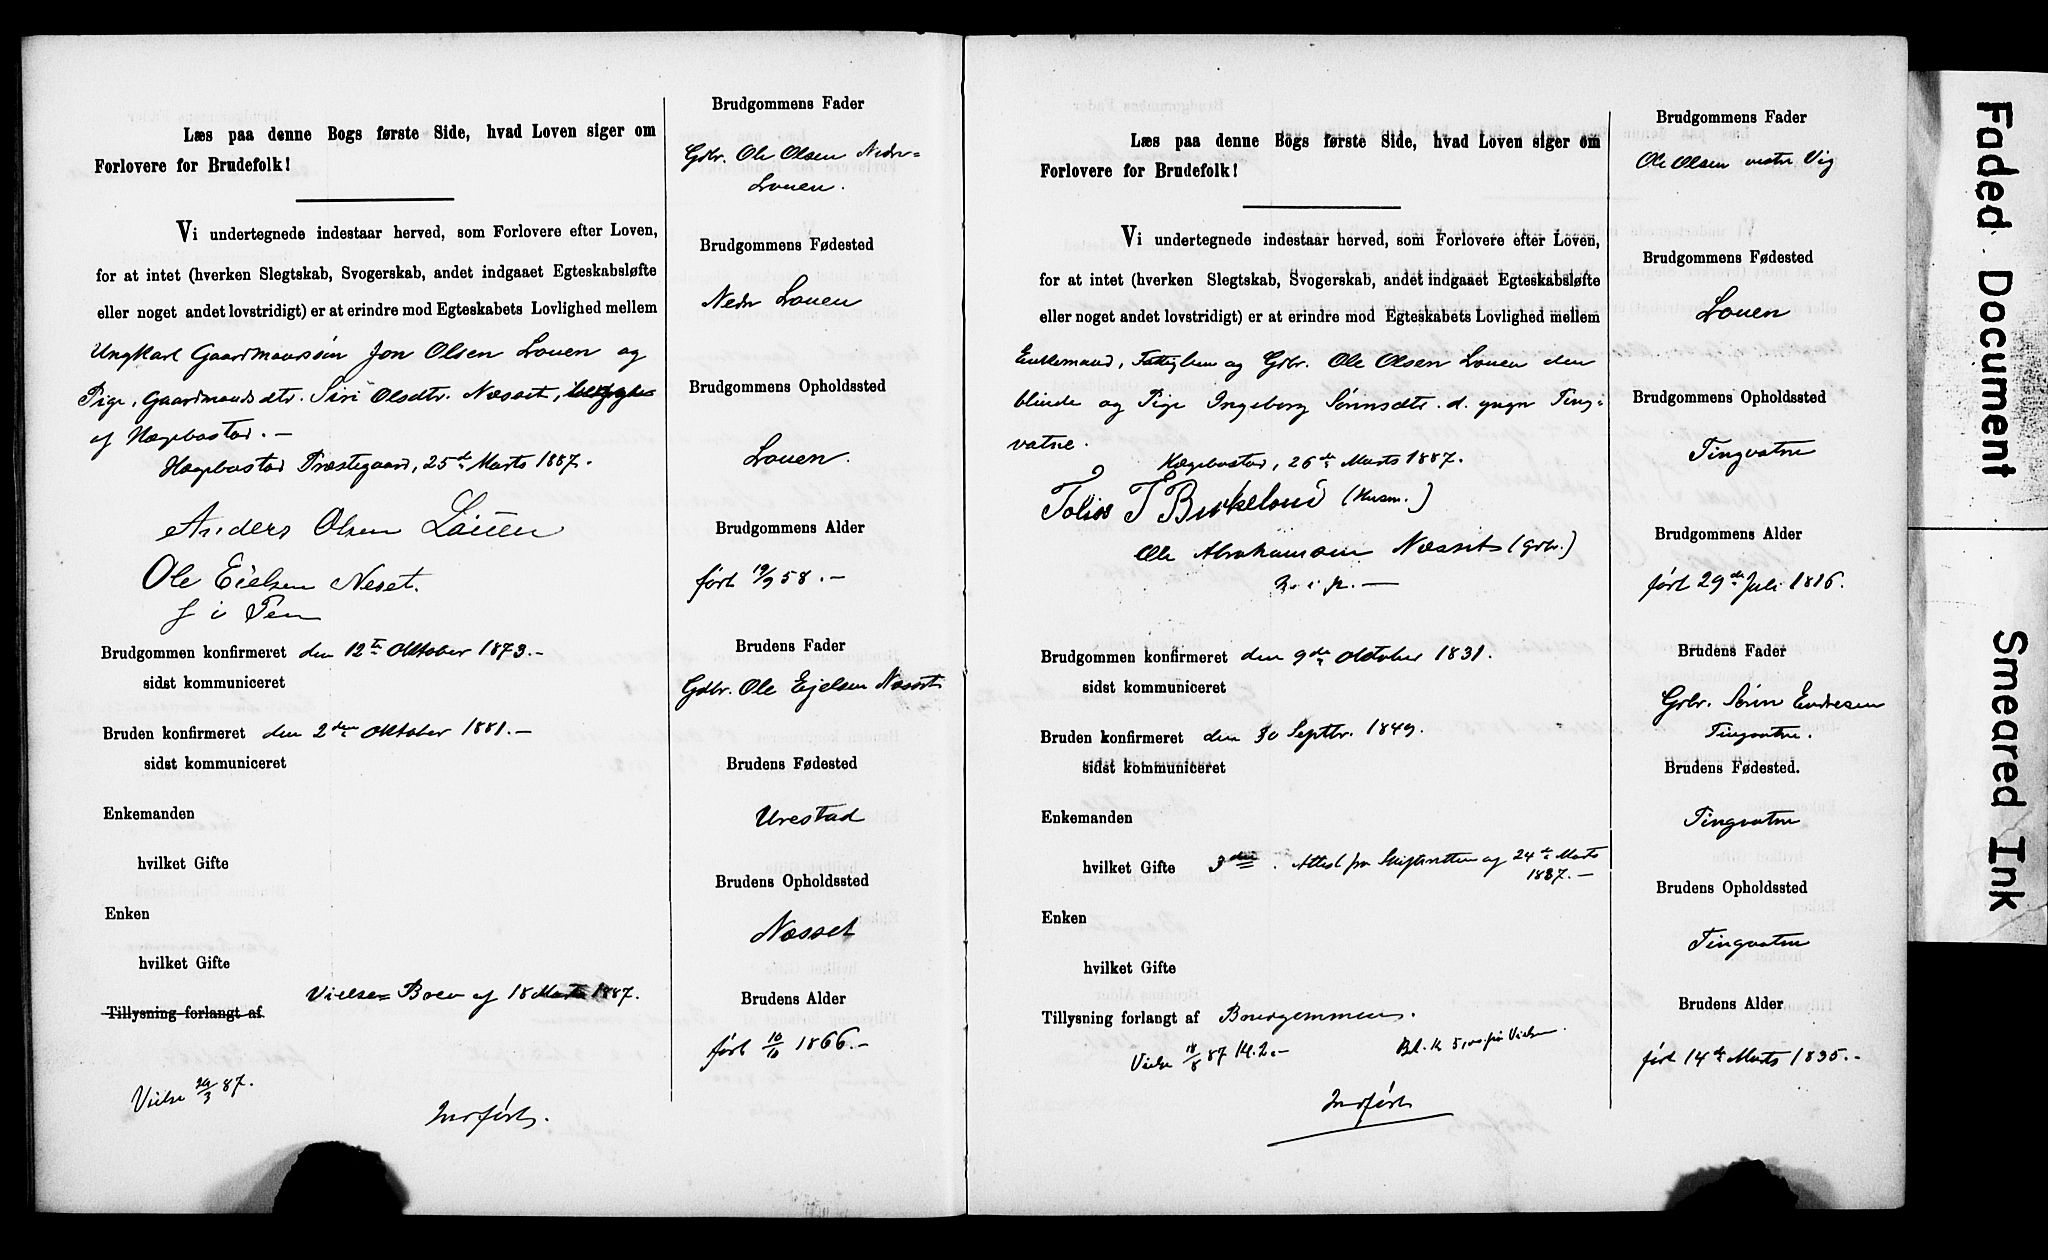 Læs paa denne Bogs første Side, hvad Loven siger om
Forlovere for Brudefolk!
Vi undertegnede indestaar herved, som Forlovere efter Loven,
for at intet (hverken Slegtskab, Svogerskab, andet indgaaet Egteskabsløfte
eller noget andet lovstridigt) er at erindre mod Egteskabets Lovlighed mellem
Ungkarl Gaardmandssøn Jon Olsen Lauen og
Pige, Gaardmandsdtr. Siri Olsdtr. Næsset,
af Hægebostad.-
Hægebostad Præstegaard, 25de Marts 1887.
Anders Olsen Lauen
Ole Eielsen Neset.
i Pen
Brudgommen konfirmeret den 12te Oktober 1873.-
sidst kommuniceret
Bruden konfirmeret den 2den Oktober 1881.-
sidst kommuniceret
Enkemanden
hvilket Gifte
Enken
hvilket Gifte
Tillysning forlangt af Vielses Brev af 18 Marts 1887.
Vielse 29/3 87.
Indført.
Brudgommens Fader
Gdbr. Ole Olsen Nedre-
Lauen.
Brudgommens Fødested
Nedr Lauen
Brudgommens Opholdssted
Lauen.
Brudgommens Alder
født 19/9 58.-
Brudens Fader
Gdbr. Ole Ejelsen Næsset
Brudens Fødested
Urestad
Brudens Opholdssted
Næsset
Brudens Alder
født 10/10 1866.-
Læs paa denne Bogs første Side, hvad Loven siger om
Forlovere for Brudefolk!
Vi undertegnede indestaar herved, som Forlovere efter Loven,
for at intet (hverken Slegtskab, Svogerskab, andet indgaaet Egteskabsløfte
eller noget andet lovstridigt) er at erindre mod Egteskabets Lovlighed mellem
Enkemand, Fattiglem og Gdbr. Ole Olsen Lauen den
blinde og Pige Ingeborg Sørensdtr. d. yngr Ting-
vatne.
Hægebostad, 26de Marts 1887.
Tolius T Birkeland (Husm.)
Ole Abrahamsen Næsset (Gdbr.)
m. i p.-
Brudgommen konfirmeret den 9de Oktober 1831.
sidst kommuniceret
Bruden konfirmeret den 30 Septbr. 1849.
sidst kommuniceret
Enkemanden
hvilket Gifte 3die. Attest fra Skifteretten af 24de Marts
1887.-
Enken
hvilket Gifte
Tillysning forlangt af Brudgommen.
Vielse 18/8 87 Kl. 2.- Bet. Kr 5,00 for Vielsen.
Indført
Brudgommens Fader
Ole Olsen vestre Vig
Brudgommens Fødested
Lauen
Brudgommens Opholdssted
Tingvatne
Brudgommens Alder
født 29de Juli 1816.
Brudens Fader
Gdbr. Sørin Endresen
Tingvatne.
Brudens Fødested.
Tingvatne
Brudens Opholdssted
Tingvatne
Brudens Alder
født 14de Marts 1835.-
Faded Document
Smeared Ink